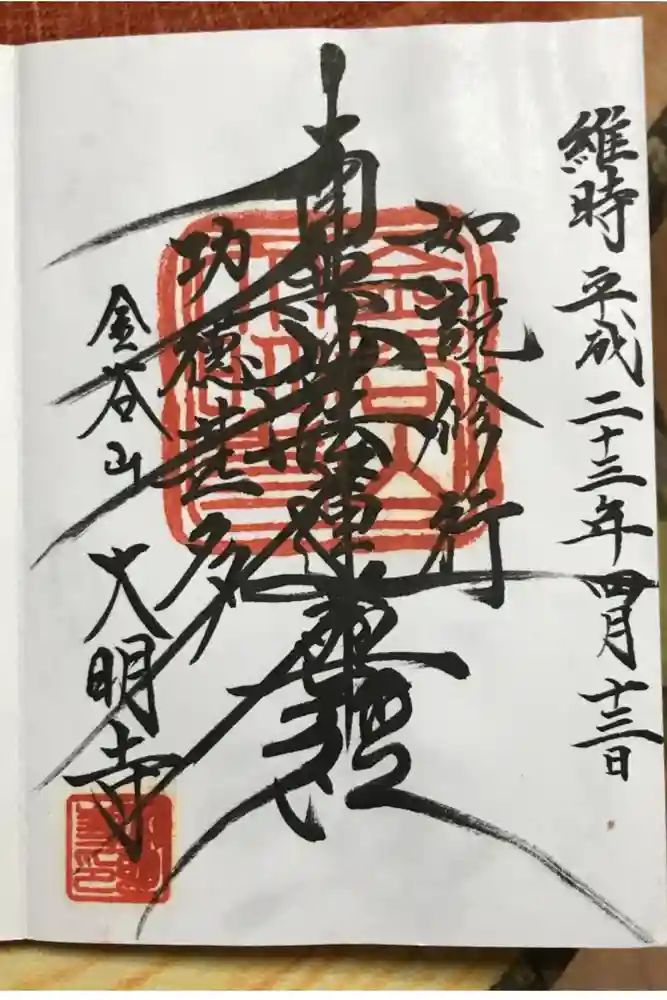 維時 平成二十三年四月十三日
如説修行
南無妙法蓮華経
功徳甚多
金谷山 大明寺